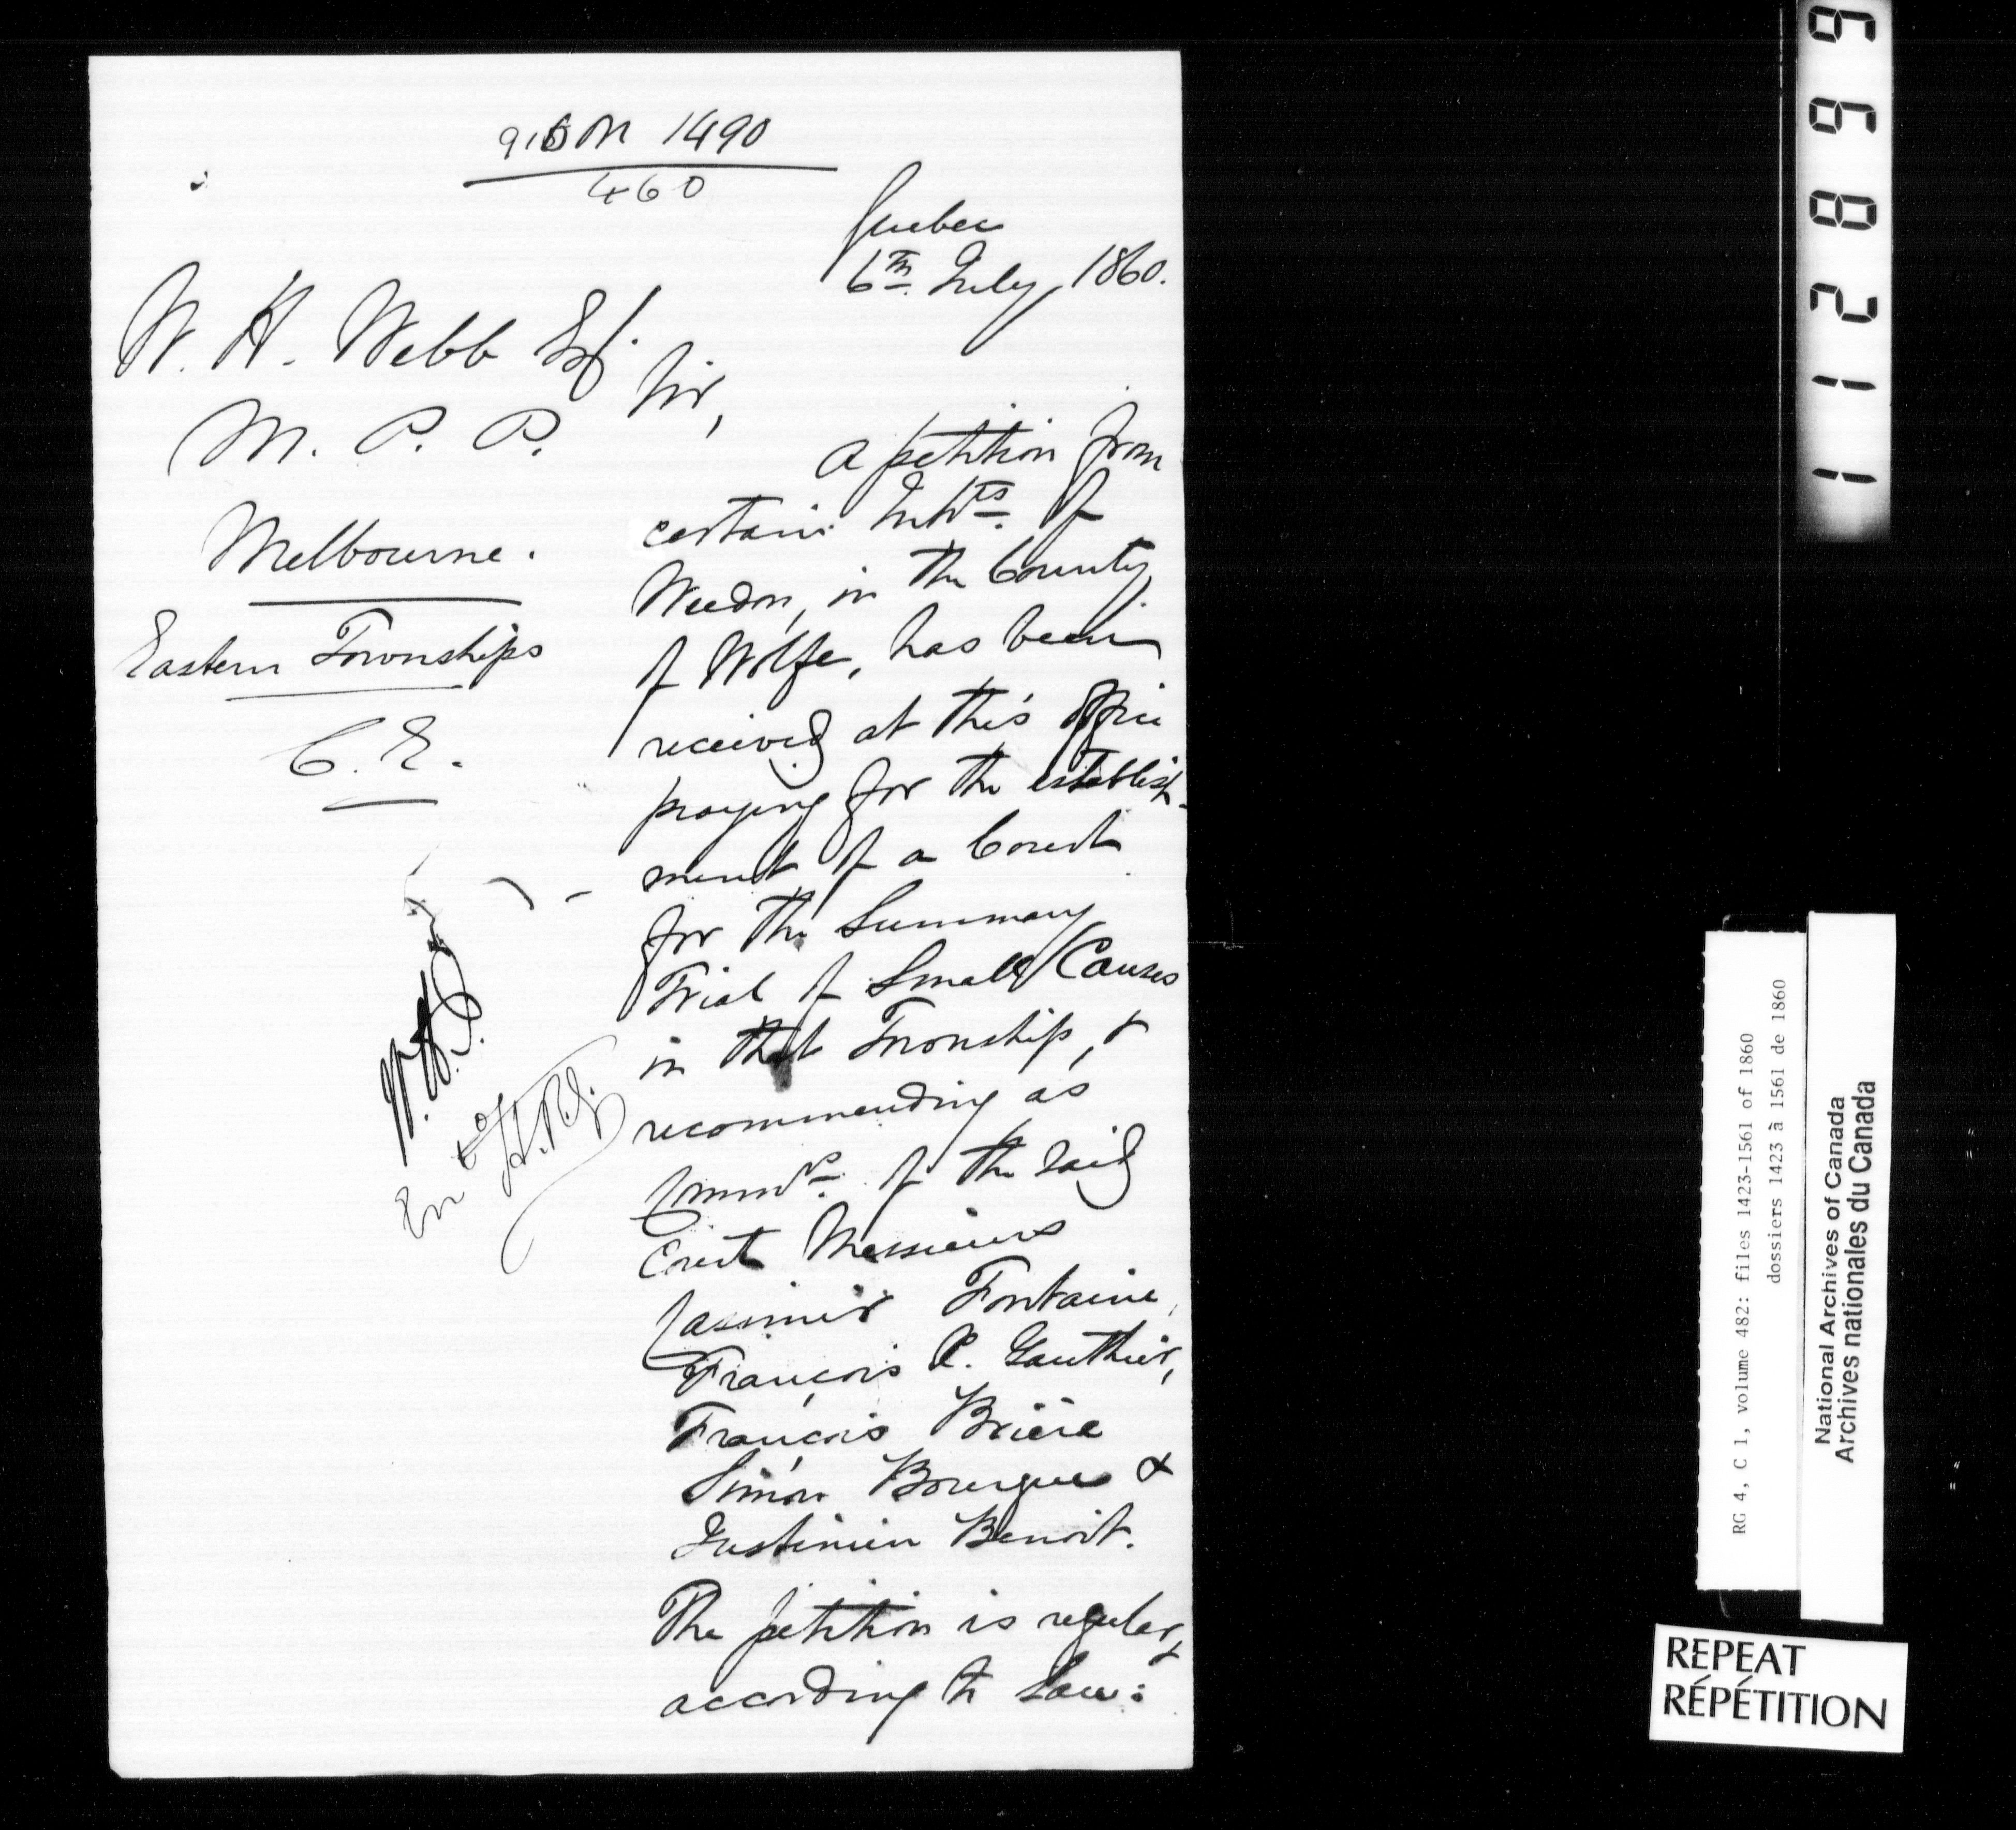 1490
460
Quebec
6th July, 1860.
W. H. Webb Esq.
M. P. P.
Melbourne.
Eastern Townships
C. E.
Sir,
A petition from
certain Inhts. of
Weedon, in the County
of Wolfe, has been
received at this office
praying for the establish-
ment of a Court
for the Summary
Trial of Small Causes
in that Township, &
recommending as
Commrs. of the said
Court Messieurs
Casimir Fontaine,
François P. Gauthier,
François Brière
Simon Bourque &
Justinien Benoit.
The petition is regular &
according to Law:
112899
RG 4, C 1, volume 482: files 1423-1561 of 1860
dossiers 1423 à 1561 de 1860
National Archives of Canada
Archives nationales du Canada
REPEAT
RÉPÉTITION